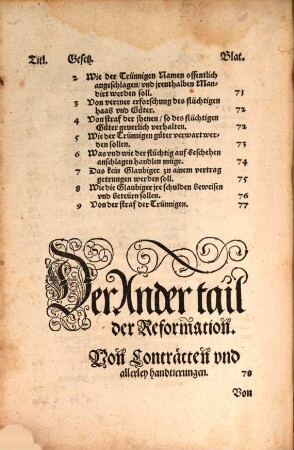 Titl. Gesetz. Blat.
2 Wie der Trünnigen Namen offentlich
angeschlagen/vnd jrenthalben Man-
dirt werden soll. 71
3 Von verrner erforschung des flüchtigen
haab vnd Güter. 72
4 Von straf der jhenen/so des flüchtigen
Güter geuerlich verhalten. 72
5 Wie der Trünnigen güter verwart wer-
den sollen. 73
6 Was vnd wie der flüchtig auf beschehen
anschlagen handlen müge. 74
7 Das kein Glaubiger zu ainem vertrag
getrungen werden soll. 75
8 Wie die Glaubiger jre schulden beweisen
vnd beteürn sollen. 76
9 Von der straf der Trünnigen. 77
Der Ander tail
der Reformation.
Von Contràtten vnd
allerley handtierungen. 78
Von